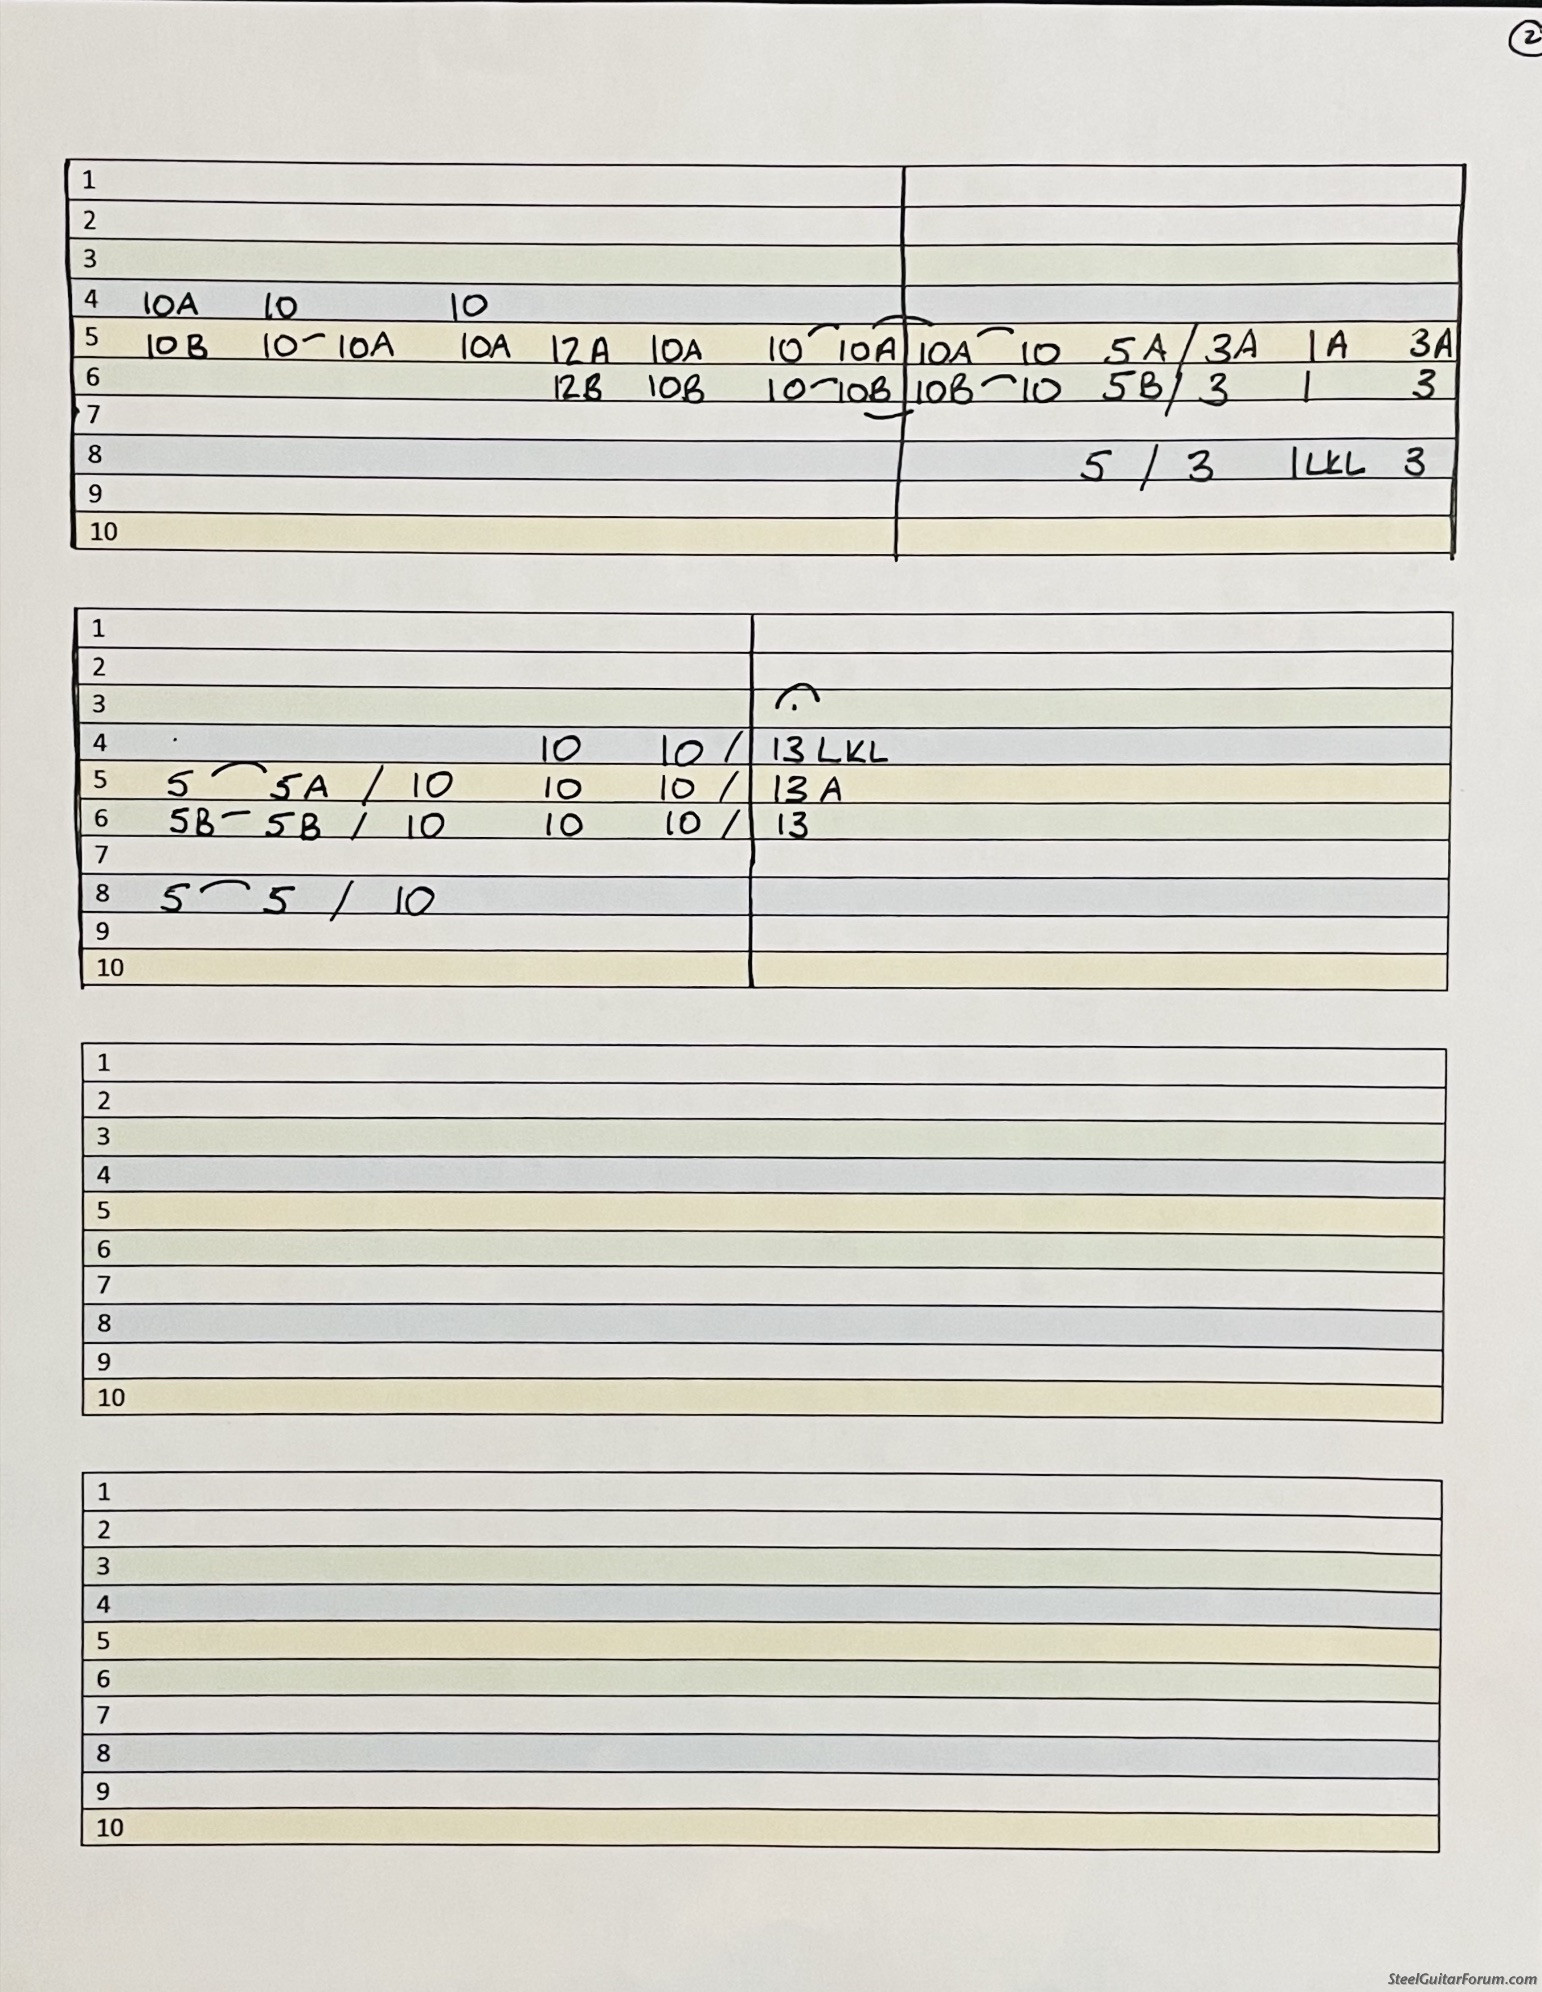 2
1
2
3
4 10A 10 10
5 10B 10 10A 10A 12A 10A 10 10A 10A 10 5A / 3A 1A 3A
6 12B 10B 10 10B 10B 10 5B / 3 1 3
7
8 5 / 3 1LKL 3
9
10
1
2
3
4 10 10 / 13 LKL
5 5 5A / 10 10 10 / 13 A
6 5B 5B / 10 10 10 / 13
7
8 5 5 / 10
9
10
1
2
3
4
5
6
7
8
9
10
1
2
3
4
5
6
7
8
9
10
SteelGuitarForum.com